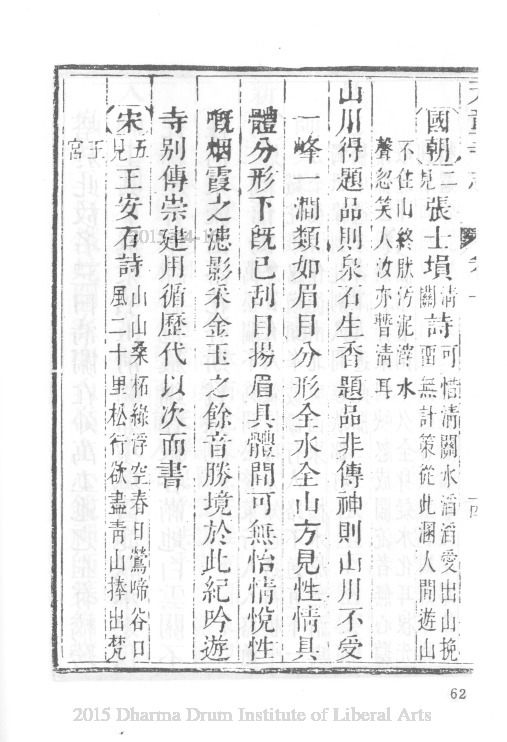 國朝二見張士塤清關詩可惜清關水滔滔愛出山挽
留無計策從此溷人間遊山
不住山終肰汚泥滓水
聲忽笑人汝亦暫清耳
山川得題品則泉石生香題品非傳神則山川不愛
一峰一澗類如眉目分形全水全山方見性情具
體分形下旣已刮目揚眉具體間可無怡情悅性
嘅烟霞之濾影采金玉之餘音勝境於此紀吟遊
寺别傳崇建用循歷代以次而書
宋五見王安石詩山山桑柘綠浮空春日鶯啼谷口
風二十里松行欲盡青山捧出梵
王
宮
62
2015 Dharma Drum Institute of Liberal Arts